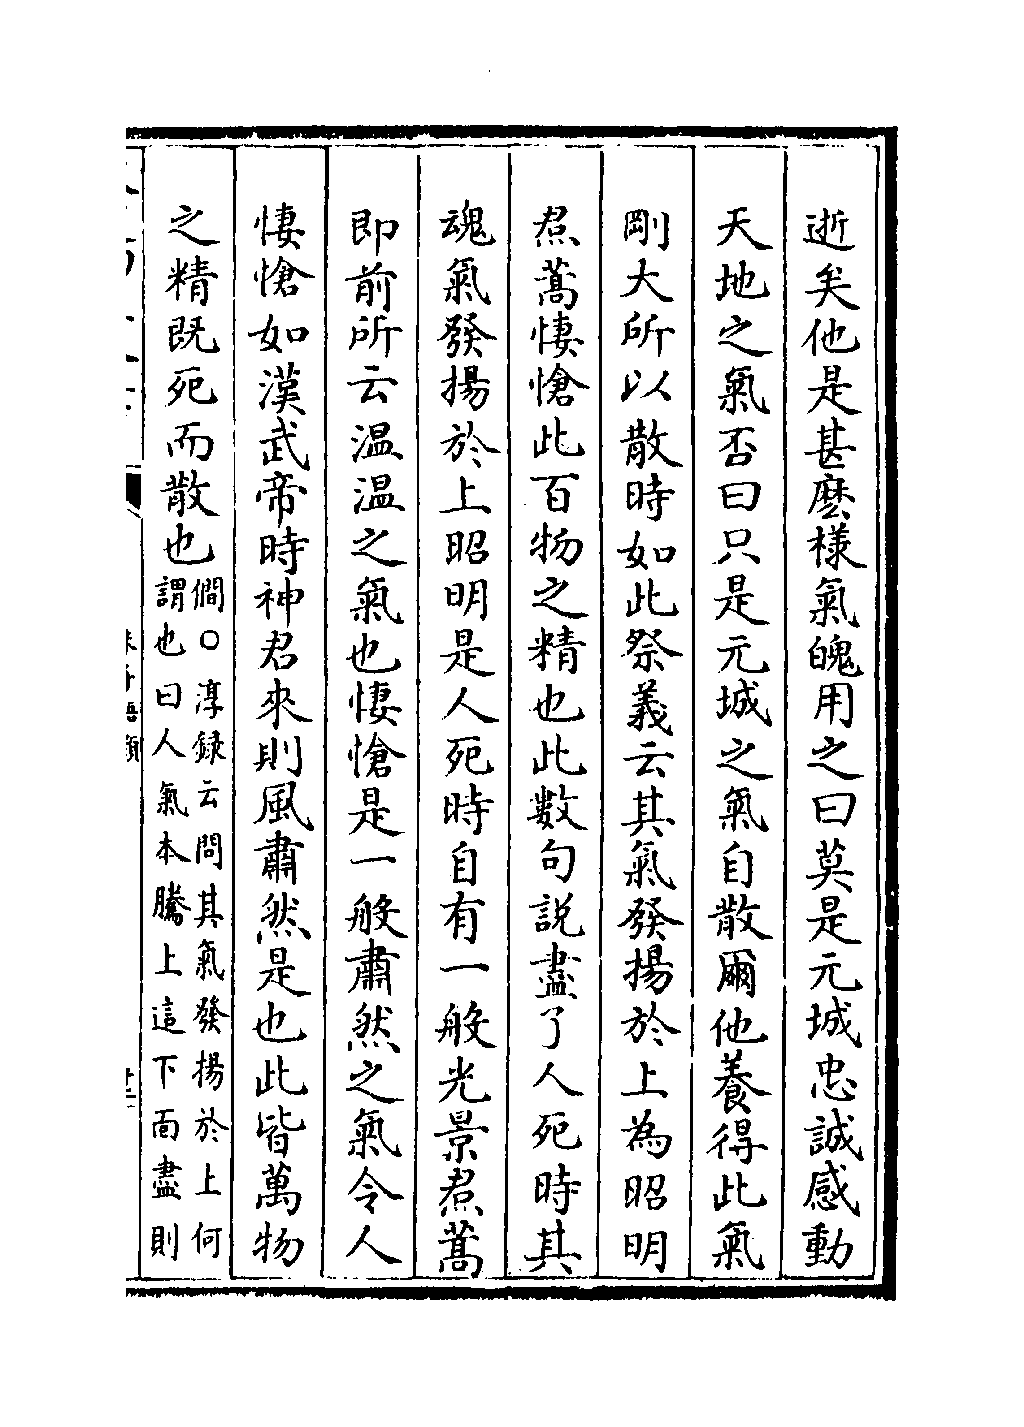 逝矣他是甚麽様氣魄用之曰莫是元城忠誠感動
天地之氣否曰只是元城之氣自散爾他養得此氣
剛大所以散時如此祭義云其氣發揚於上為昭明
焄蒿悽愴此百物之精也此數句説盡了人死時其
魂氣發揚於上昭明是人死時自有一般光景焄蒿
即前所云温温之氣也悽愴是一般肅然之氣令人
悽愴如漢武帝時神君來則風肅然是也此皆萬物
之精既死而散也
僩○淳録云問其氣發揚於上何
謂也曰人氣本騰上這下面盡則
朱子語類